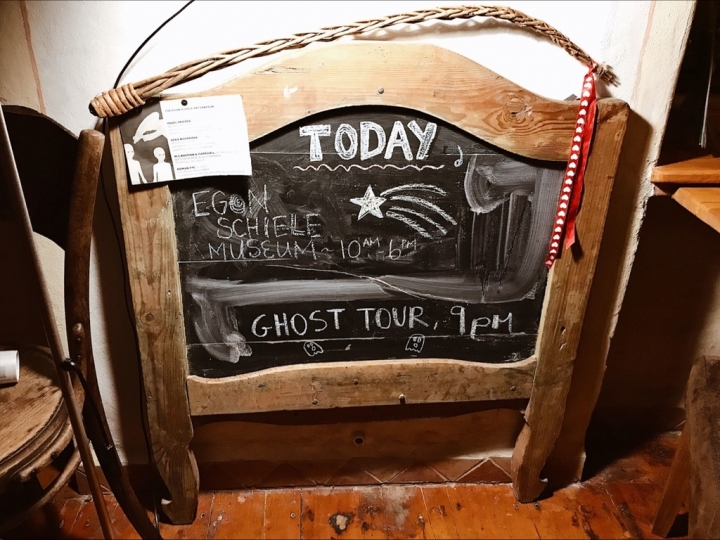 TODAY
EGON
SCHIELE
MUSEUM ~ 10AM - 6PM
GHOST TOUR, 9PM